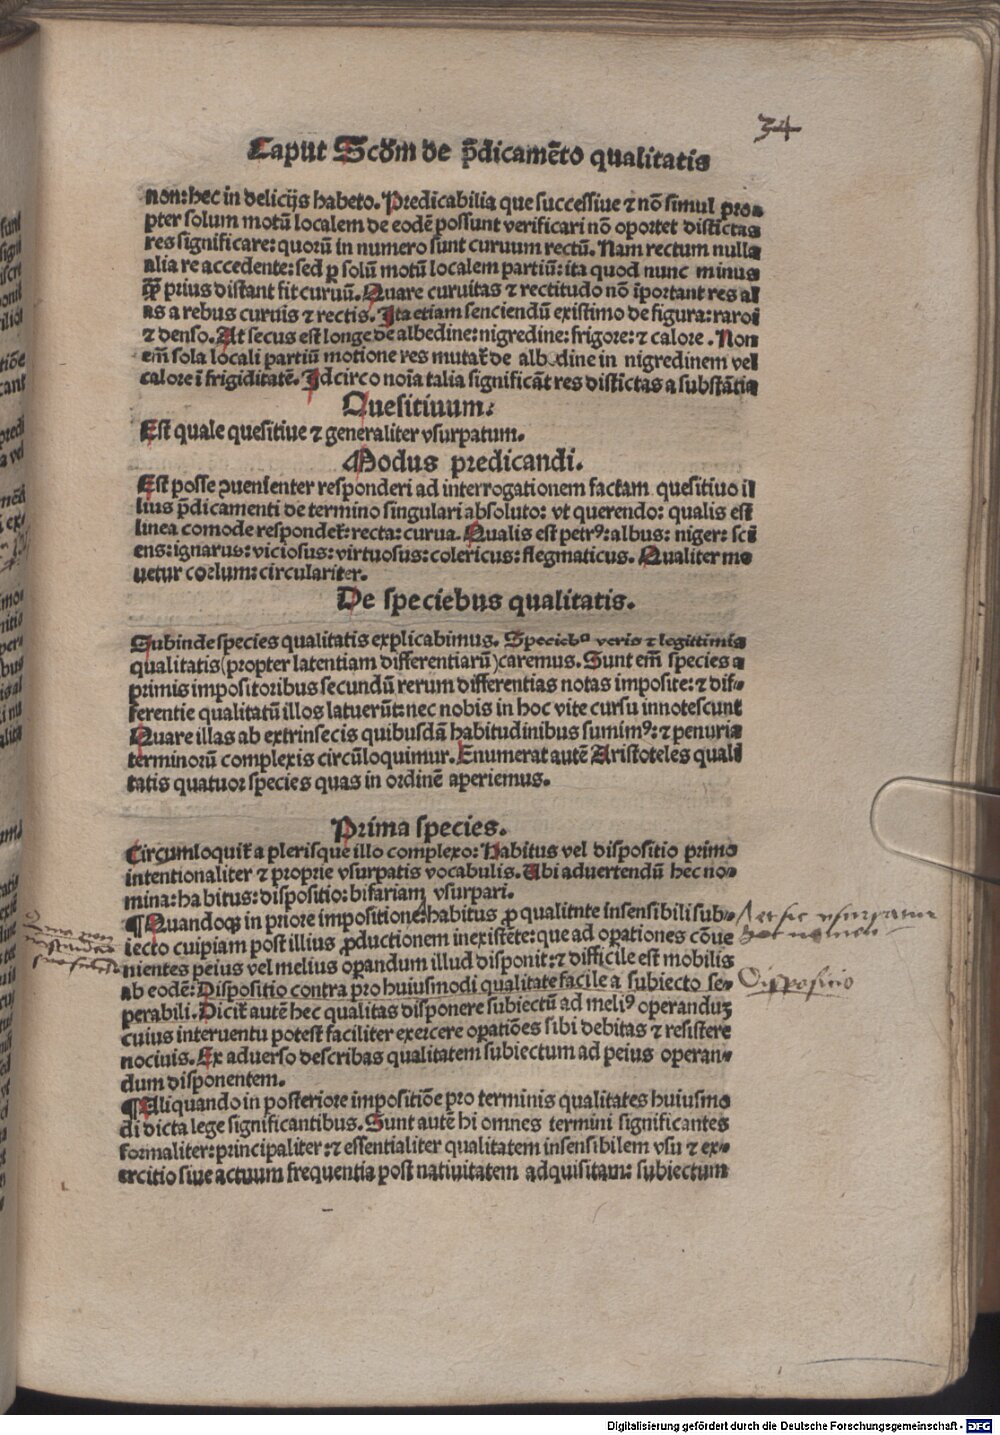 34
Caput Scd̄m de p̄dicamēto qualitatis
non: hec in delicijs habeto. Predicabilia que successiue ⁊ nō simul pro⸗
pter solum motū localem de eodē possunt verificari nō oportet distictas
res significare: quorū in numero sunt curuum rectū. Nam rectum nulla
alia re accedente: sed ꝑ solū motū localem partiū: ita quod nunc minus
prius distant fit curuū. Quare curuitas ⁊ rectitudo nō īportant res al
as a rebus curuis ⁊ rectis. Ita etiam senciendū existimo de figura: raroi
⁊ denso. At secus est longe de albedine: nigredine: frigore: ⁊ calore. Non
em̄ sola locali partiū motione res mutat̄ de albedine in nigredinem vel
calore ī frigiditatē. Idcirco noīa talia significāt res distīctas a substātia
Quesitiuum:
Est quale quesitiue ⁊ generaliter vsurpatum.
Modus predicandi.
Est posse ꝯuenienter responderi ad interrogationem factam quesitiuo il
lius p̄dicamenti de termino singulari absoluto: vt querendo: qualis est
linea comode respondet̄: recta: curua. Qualis est petrꝰ: albus: niger: sci
ens: ignarus: viciosus: virtuosus: colericus: flegmaticus. Qualiter mo
uetur coelum: circulariter.
De speciebus qualitatis.
Subinde species qualitatis explicabimus. Speciebꝰ veris ⁊ legittimis
qualitatis (propter latentiam differentiarū) caremus. Sunt em̄ species a
primis impositoribus secundū rerum differentias notas imposite: ⁊ dif⸗
ferentie qualitatū illos latuerūt: nec nobis in hoc vite cursu innotescunt
Quare illas ab extrinsecis quibusdā habitudinibus sumimꝰ: ⁊ penuria
terminorū complexis circūloquimur. Enumerat autē Aristoteles quali
tatis quatuor species quas in ordinē aperiemus.
Prima species.
Circumloquit̄ a plerisque illo complexo: Habitus vel dispositio primo
intentionaliter ⁊ proprie vsurpatis vocabulis. Ubi aduertendū hec no⸗
mina: habitus: dispositio: bifariam vsurpari.
¶ Quandoqꝫ in priore impositione: habitus ꝓ qualitate insensibili sub⸗
iecto cuipiam post illius ꝓductionem inexistēte: que ad oꝑationes cōue
nientes peius vel melius oꝑandum illud disponit: ⁊ difficile est mobilis
ab eodē: Dispositio contra pro huiusmodi qualitate facile a subiecto se⸗
perabili. Dicit̄ autē hec qualitas disponere subiectū ad meliꝰ operanduꝫ
cuius interuentu potest faciliter exercere oꝑatiōes sibi debitas ⁊ resistere
nociuis. Ex aduerso describas qualitatem subiectum ad peius operan⸗
dum disponentem.
¶ Aliquando in posteriore impositiōe pro terminis qualitates huiusmo
di dicta lege significantibus. Sunt autē hi omnes termini significantes
formaliter: principaliter: ⁊ essentialiter qualitatem insensibilem vsu ⁊ ex⸗
ercitio siue actuum frequentia post natiuitatem adquisitam: subiectum
Dispositio
Digitalisierung gefördert durch die Deutsche Forschungsgemeinschaft - DFG